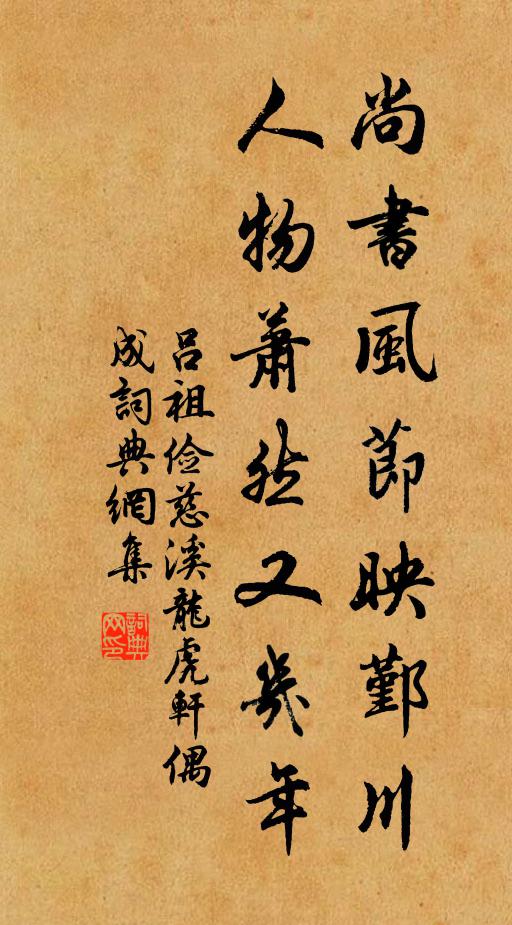 尚書風節映鄞川
人物蕭然又幾年
呂祖儉慈溪龍虎軒偶
成詞典網集
詞典网印